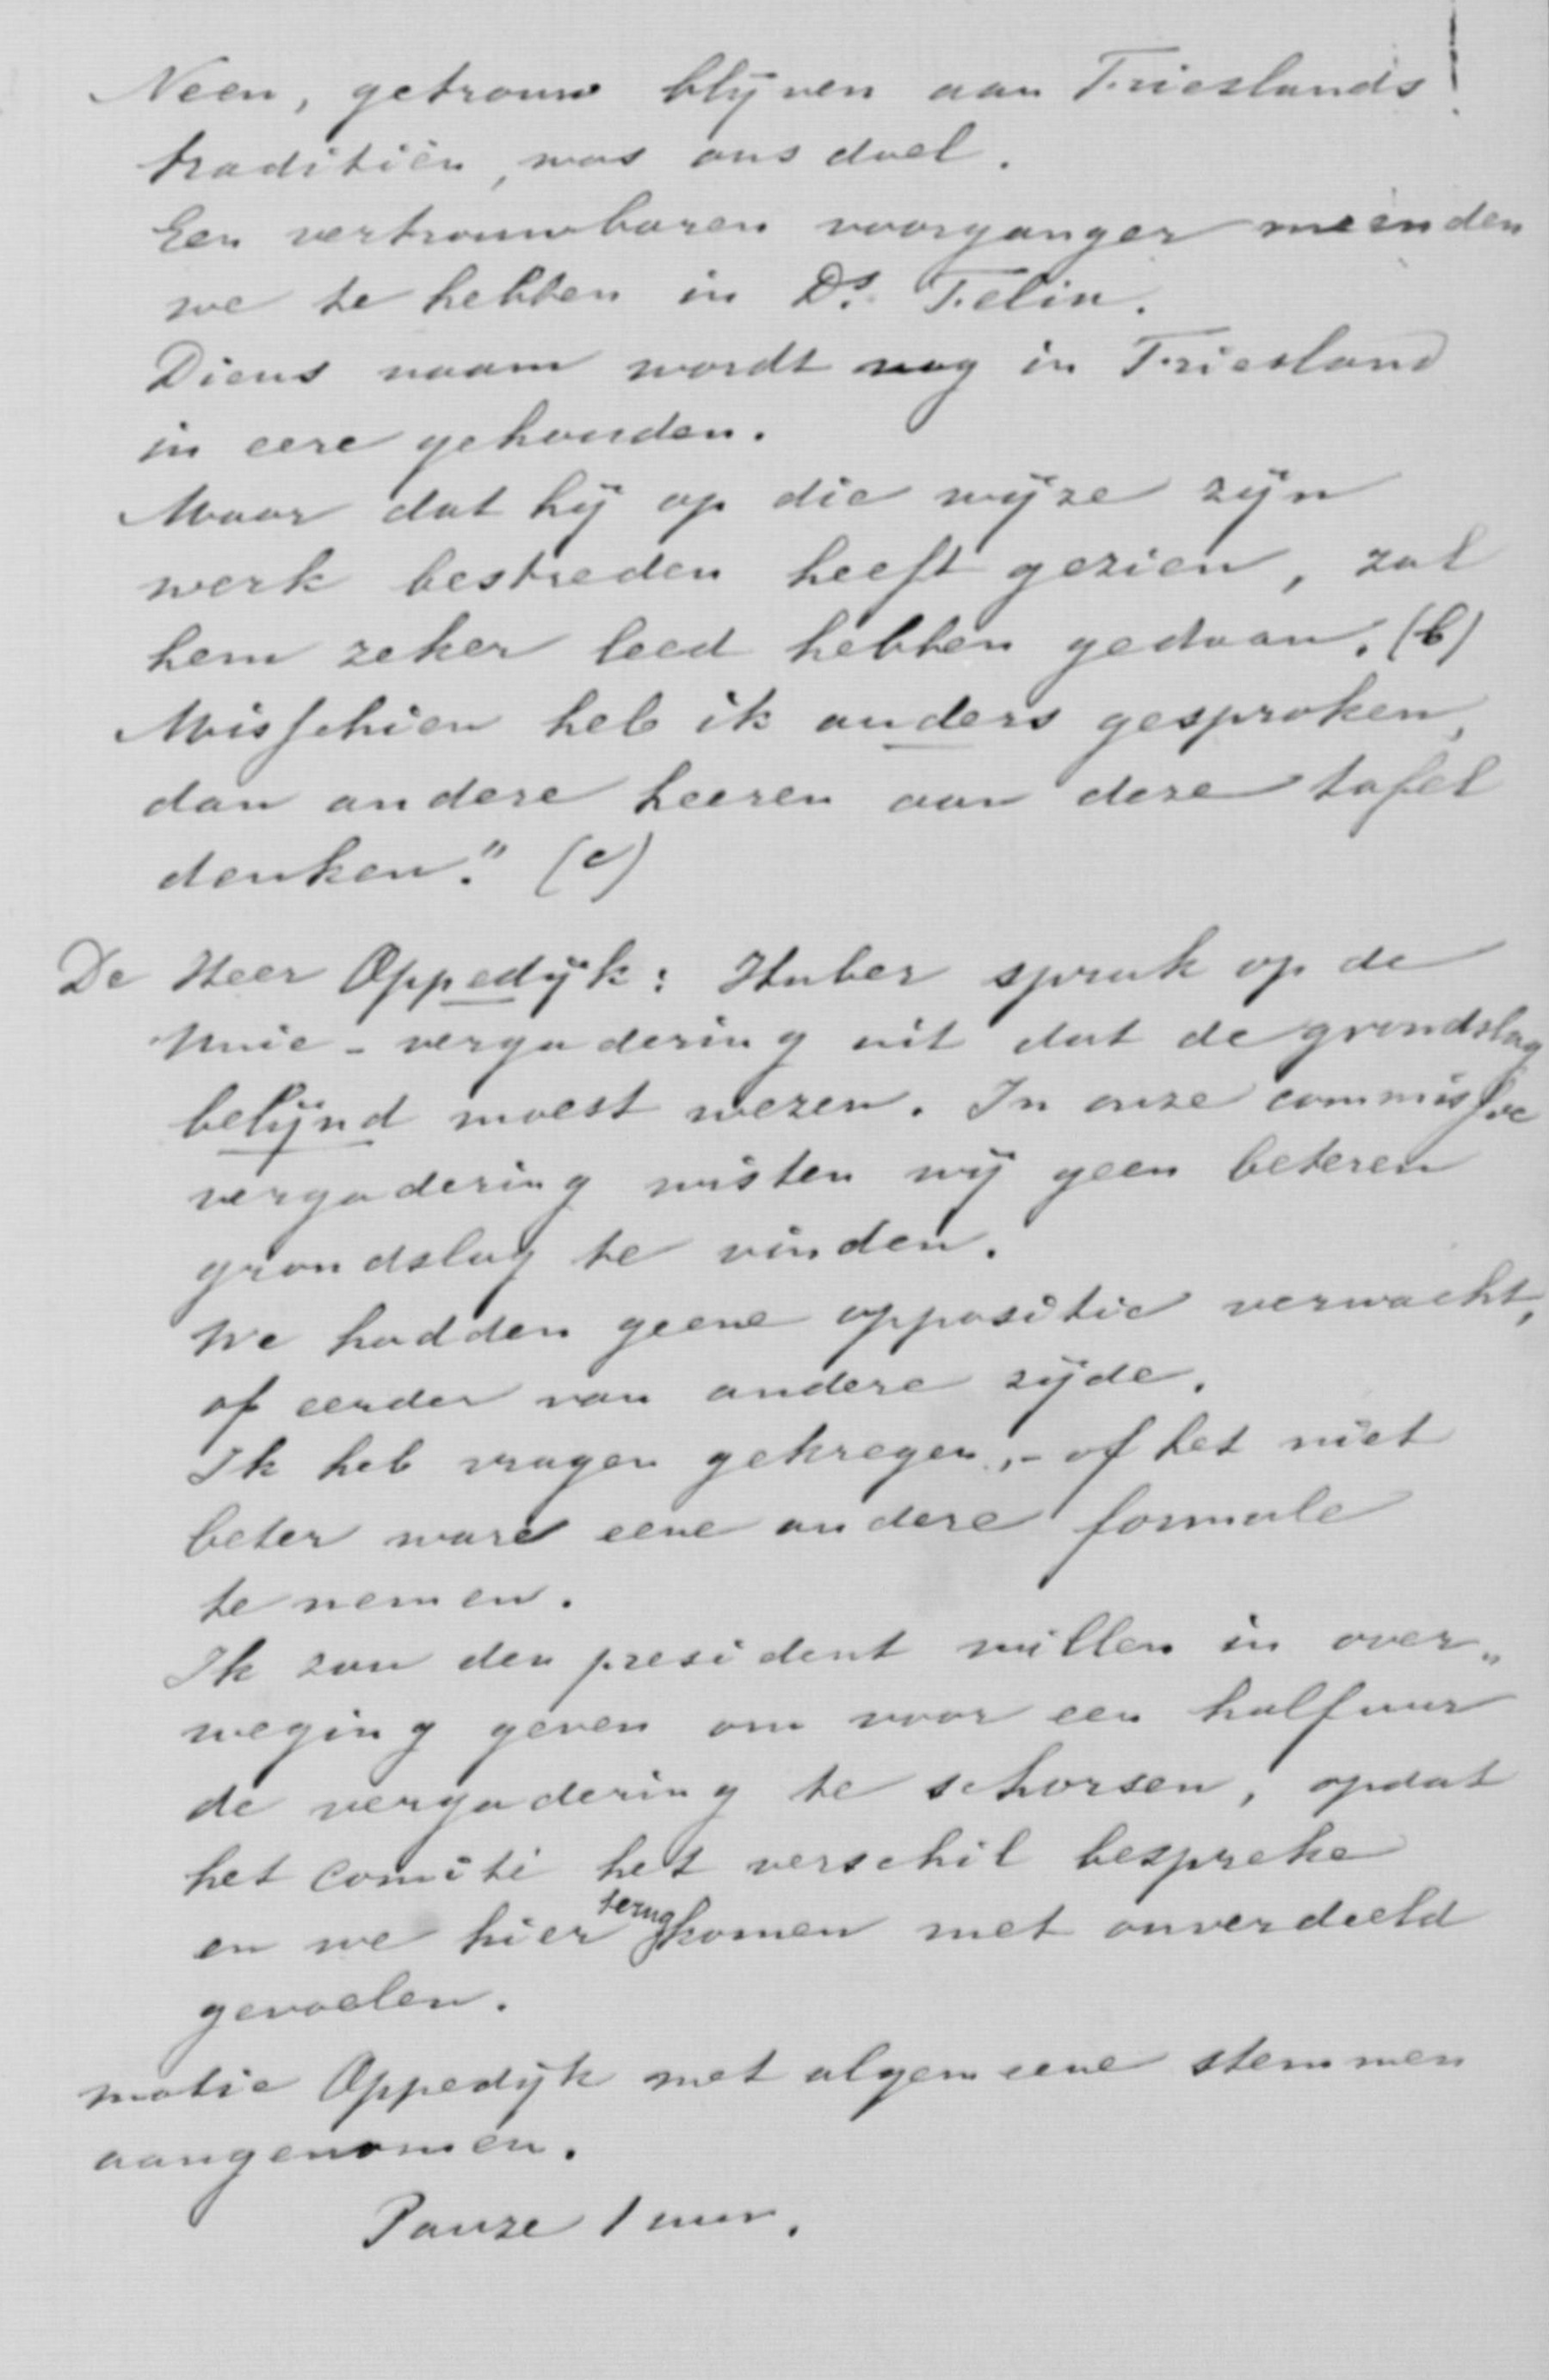 Neen, getrouw blijven aan Frieslands
traditiën, was ons doel.
Een vertrouwbaren voorganger meenden
we te hebben in Ds. Felix.
Diens naam wordt nog in Friesland
in eere gehouden.
Maar dat hij op die wijze zijn
werk bestreden heeft gezien, zal
hem zeker leed hebben gedaan. (b)
Misschien heb ik anders gesproken,
dan andere heeren aan deze tafel
denken." (c)
De Heer Oppedijk: Huber sprak op de
Unie-vergadering uit dat de grondslag
belijnd moest wezen. In onze commissie
vergadering wisten wij geen beteren
grondslag te vinden.
We hadden geene oppositie verwacht,
of eerder van andere zijde.
Ik heb vragen gekregen,- of het niet
beter ware eene andere formule
te nemen.
Ik zou den president willen in over„
weging geven om voor een half uur
de vergadering te schorsen, opdat
het Comité het verschil bespreke
en we hier terugkomen met onverdeeld
gevoelen.
motie Oppedijk met algemeene stemmen
aangenomen.
Pauze 1 uur.